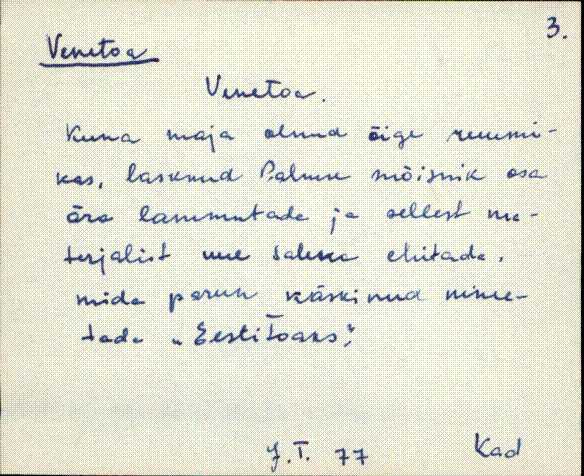 3.
Venetoa
Venetoa.
Kuna maja olnud õige ruumi-
kas, lasknud Palmse mõisnik osa
ära lammutada ja sellest ma-
terjalist uue ehitada,
mida parun käskinud nime-
tada „Eestitoaks".
J. T. 77 Kad